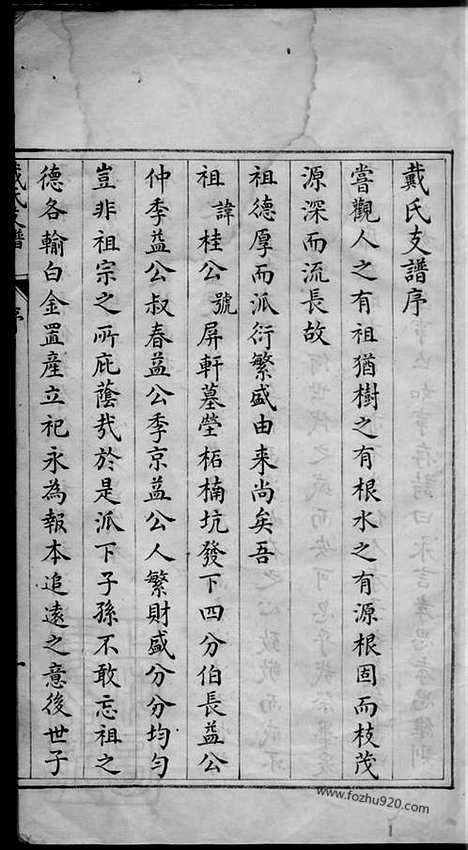 戴氏支譜序
嘗觀人之有祖猶樹之有根水之有源根固而枝茂
源深而流長故
祖德厚而派衍繁盛由来尚矣吾
祖諱桂公號屏軒墓塋柘楠坑發下四分伯長益公
仲季益公叔春益公季京益公人繁財盛分分均匀
豈非祖宗之所庇蔭㢤於是派下子孫不敢忘祖之
德各輸白金置産立祀永為報本追遠之意後世子
戴氏支譜
序
一
www.fozhu920.com
1